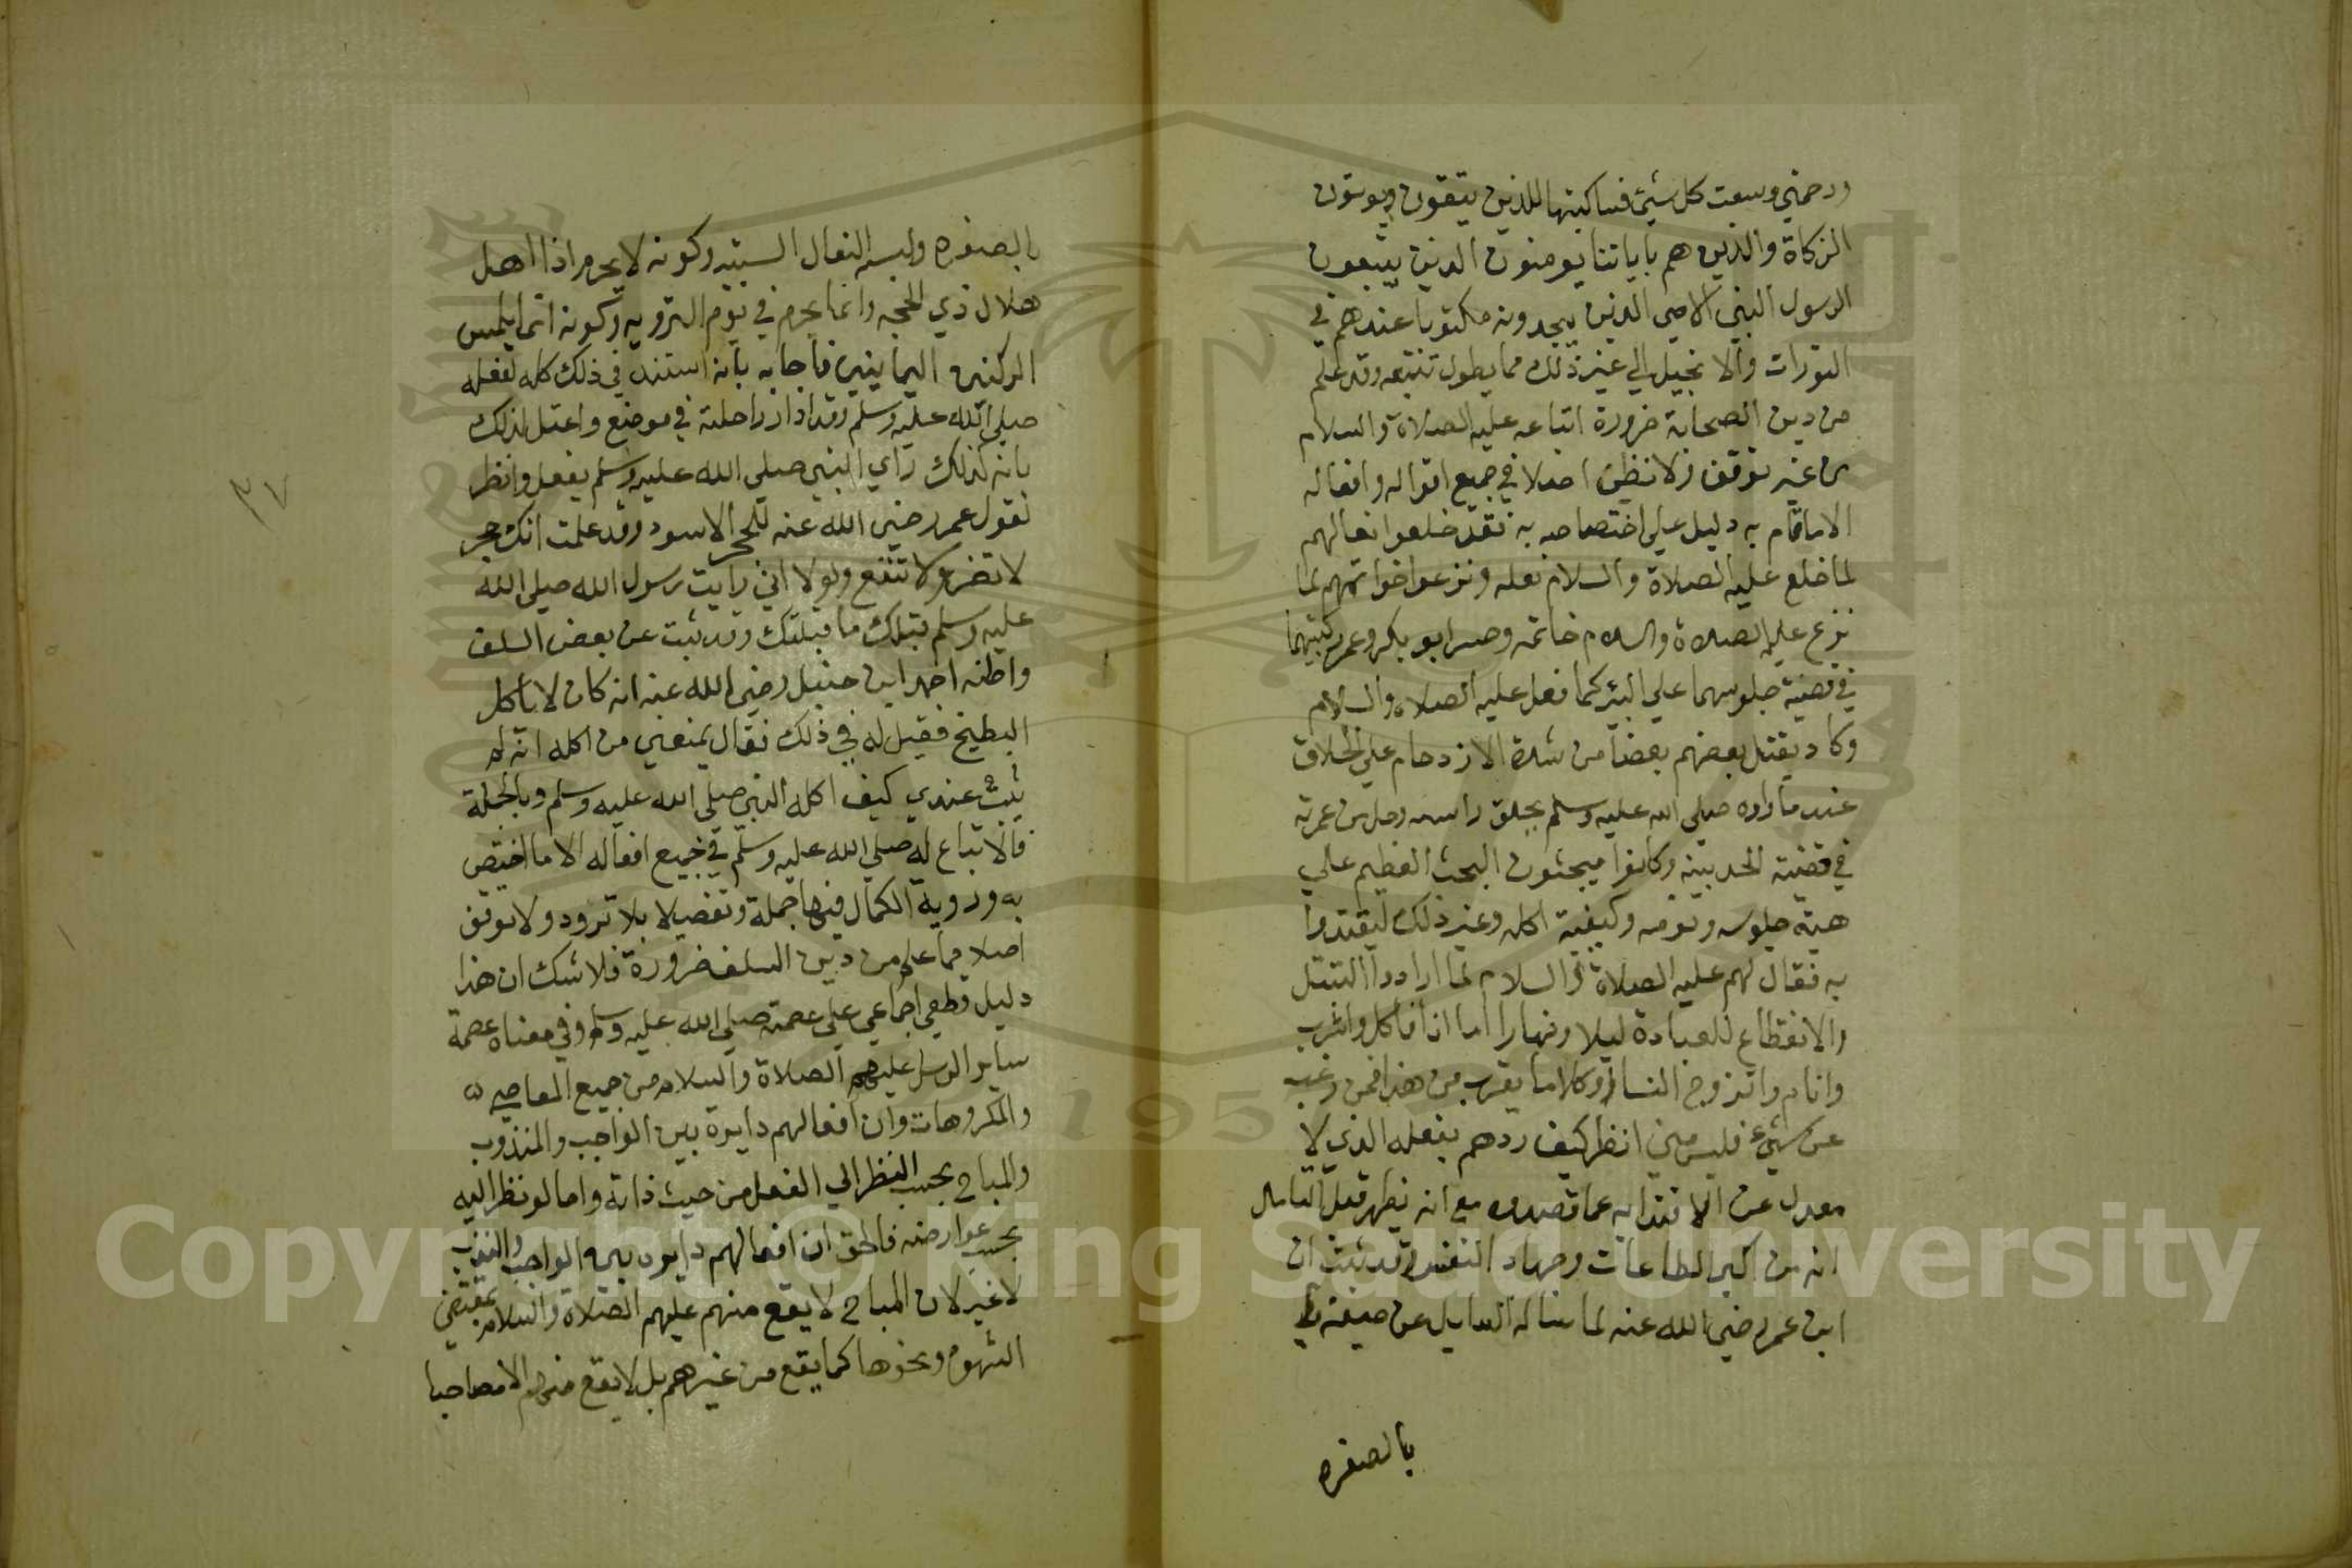 ورحمتي وسعت كل شيئ فساكتبها للذين يتقون ويوتون
الزكاة والذين هم باياتنا يومنون الذين يتبعون
الرسول النبي الامي الذين يجدونه مكتوبا عندهم في
التورات والانجيل الي غير ذلك مما يطول تتبعه وقد علم
من دين الصحابة ضرورة اتباعه عليه الصلاة والسلام
من غير توقف ولا نظر اصلا في جميع اقواله وافعاله
الا ما قام به دليل علي اختصاصه به فقد خلعوا نعالهم
لما خلع عليه الصلاة والسلام نعله ونزعوا خواتمهم لما
نزع عليه الصلاة والسلام خاتمه وحسر ابو بكر وعمر ركبتيهما
في قصية جلوسهما علي البير كما فعل عليه الصلاه والسلام
وكاد يقتل بعضهم بعضا من شدة الازدحام علي الحلاق
عند ما راوه صلي الله عليه وسلم يحلق راسه وحل من عمرته
في قضية الحديبية وكانوا يبحثون البحث العظيم علي
هية جلوسه ونومه وكيفية اكله وغير ذلك ليقتدوا
به فقال لهم عليه الصلاة والسلام لما ارادوا التبتل
والانقطاع للعبادة ليلا ونهارا اما انا فاكل واشرب
وانام واتزوج النسا او كلاما يقرب من هذا فمن رغب
عن شيء فليس مني انظر كيف ردهم بفعله الذي لا
معدل عن الاقتدا به عما قصدوه مع انه يظهر قبل التامل
انه من اكبر الطاعات وجهاد النفس وقد ثبت ان
ابن عمر رضي الله عنه لما ساله السايل عن صبغه
بالصفره
٣٧
بالصفره ولبسه النعال السبتيه وكونه لا يحرم اذا اهل
هلال ذي الحجه وانما يحرم في يوم الترويه وكونه انما يلمس
الركنين اليمانيين فاجابه بانه استند في ذلك كله لفعله
صلي الله عليه وسلم وقد ادار راحلته في موضع واعتل لذلك
بانه كذلك راي النبي صلي الله عليه وسلم يفعل وانظر
لقول عمر رضي الله عنه للحجر الاسود وقد علمت انك حجر
لا تضر ولا تنفع ولولا اني رايت رسول الله صلي الله
عليه وسلم قبلك ما قبلتك وقد ثبت عن بعض السلف
واظنه احمد ابن حنبل رضي الله عنه انه كان لا ياكل
البطيخ فقيل له في ذلك فقال يمنعني من اكله انه لم
يثبت عندي كيف اكله النبي صلي الله عليه وسلم وبالجملة
فالاتباع له صلي الله عليه وسلم في جميع افعاله الا ما اختص
به وروية الكمال فيها جملة وتفصيلا بلا تردد ولا توقف
اصلا مما علم من دين السلف ضرورة فلا شك ان هذا
دليل قطعي اجماعي علي عصمته صلي الله عليه وسلم وفي معناه عصمة
ساير الرسل عليهم الصلاة والسلام من جميع المعاصي
والمكروهات وان افعالهم دايرة بين الواجب والمندوب
والمباح بحسب النظر الي الفعل من حيث ذاته واما لو نظر اليه
بحسب عوارضه فالحق ان افعالهم دايره بين الواجب والندب
لا غير لان المباح لا يقع منهم عليهم الصلاة والسلام بمقتضي
الشهوه ونحوها كما يقع من غيرهم بل لا يقع منهم الا مصاحبا
Copyright © King Saud University
195